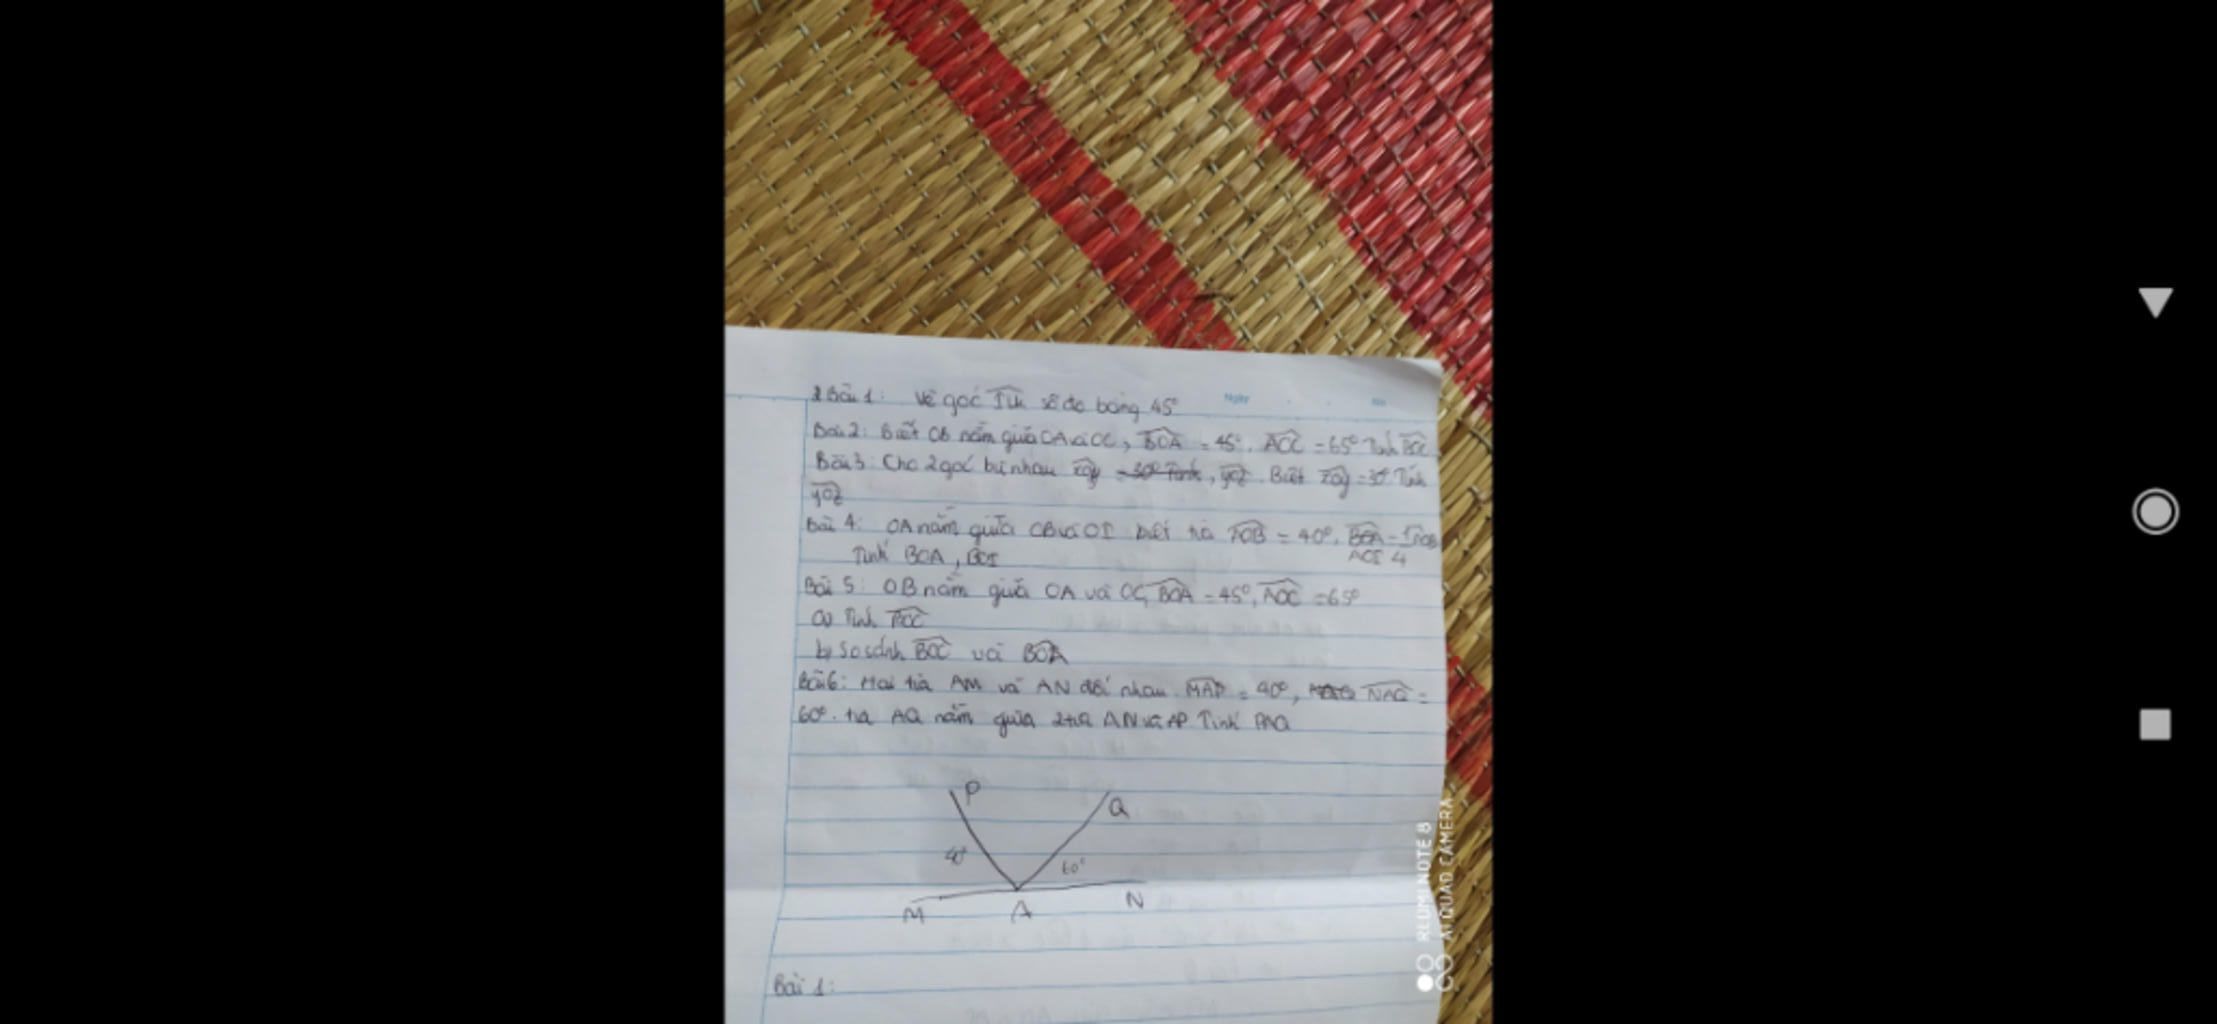 Bài 1: Vẽ góc số đo bằng 45°
Ngày
Bài 2: Biết OB nằm giữa OA và OC, BOA = 45°, AOC = 65° Tính BOC
Bài 3: Cho 2 góc bù nhau xoy = 30° Tính, yoz. Biết xoy = 30° Tính
yoz
Bài 4: OA nằm giữa OB và OI biết IOB = 40°, BOA = AOI 4
Tính BOA, BOI
Bài 5: OB nằm giữa OA và OC, BOA = 45°, AOC = 65°
a) Tính BOC
b) So sánh BOC và BOA
Bài 6: Hai tia AM và AN đối nhau. MAP = 40°, NAQ =
60°. tia AQ nằm giữa 2 tia AN và AP Tính PAQ
P
Q
40°
60°
M A N
Bài 1:
REDMI NOTE 8
AI QUAD CAMERA